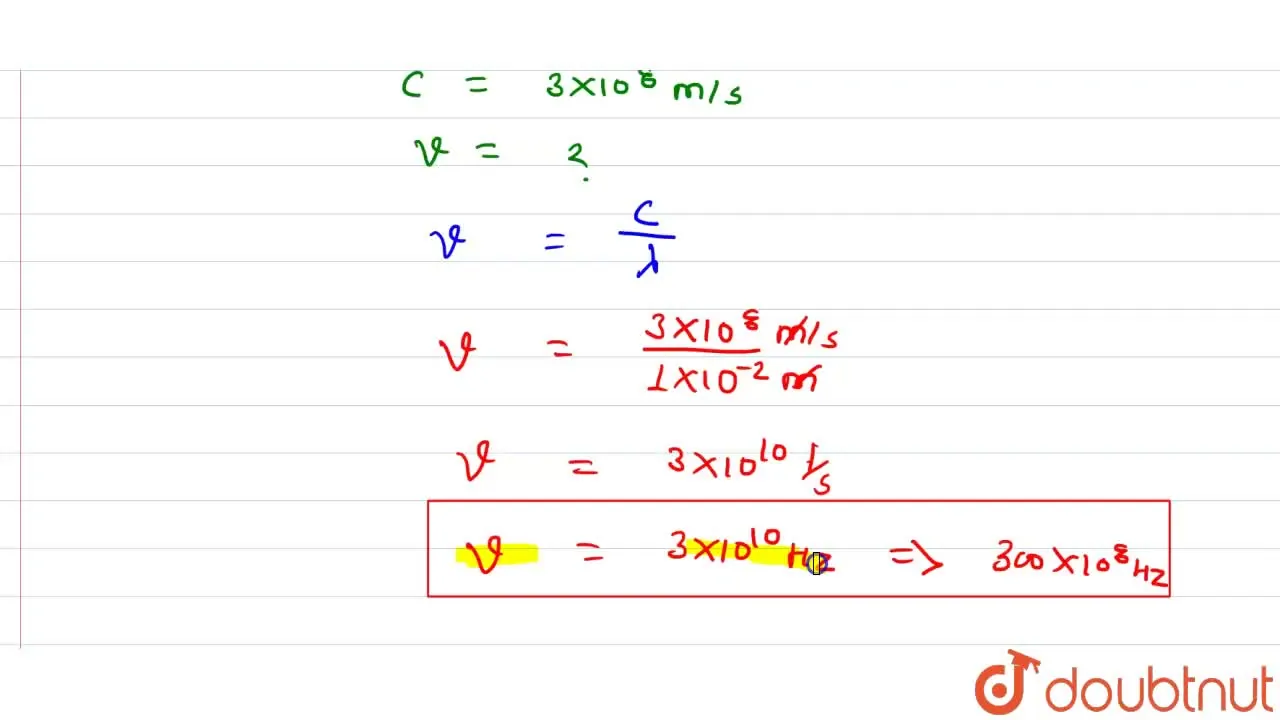 C = 3×10⁸ m/s
ν = ?
ν = C/λ
ν = 3×10⁸ m/s / 1×10⁻² m
ν = 3×10¹⁰ 1/s
ν = 3×10¹⁰ Hz => 300×10⁸ Hz
doubtnut